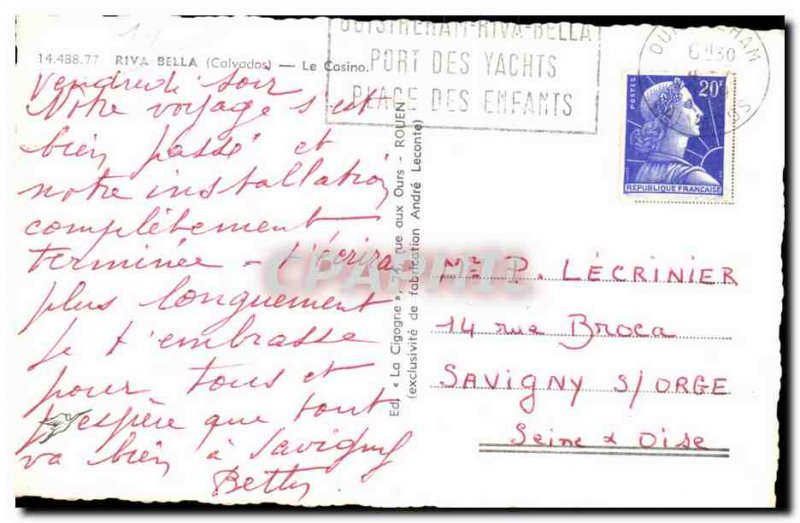 14.488.77 RIVA BELLA (Calvados) — Le Casino.
vendredi soir
Notre voyage s'est
bien passé et
notre installation
complètement
terminée - t'écrirai
plus longuement
Je t'embrasse
pour tous et
j'espère que tout
va bien à Savigny
Betty
Ed. « La Cigogne », rue aux Ours - ROUEN
(exclusivité de fabrication André Leconte)
OUISTREHAM-RIVA-BELLA
PORT DES YACHTS
PLAGE DES ENFANTS
POSTES
20F
REPUBLIQUE FRANÇAISE
CPAPHIL
Mr P. LÉCRINIER
14 rue Broca
SAVIGNY S/ORGE
Seine & Oise